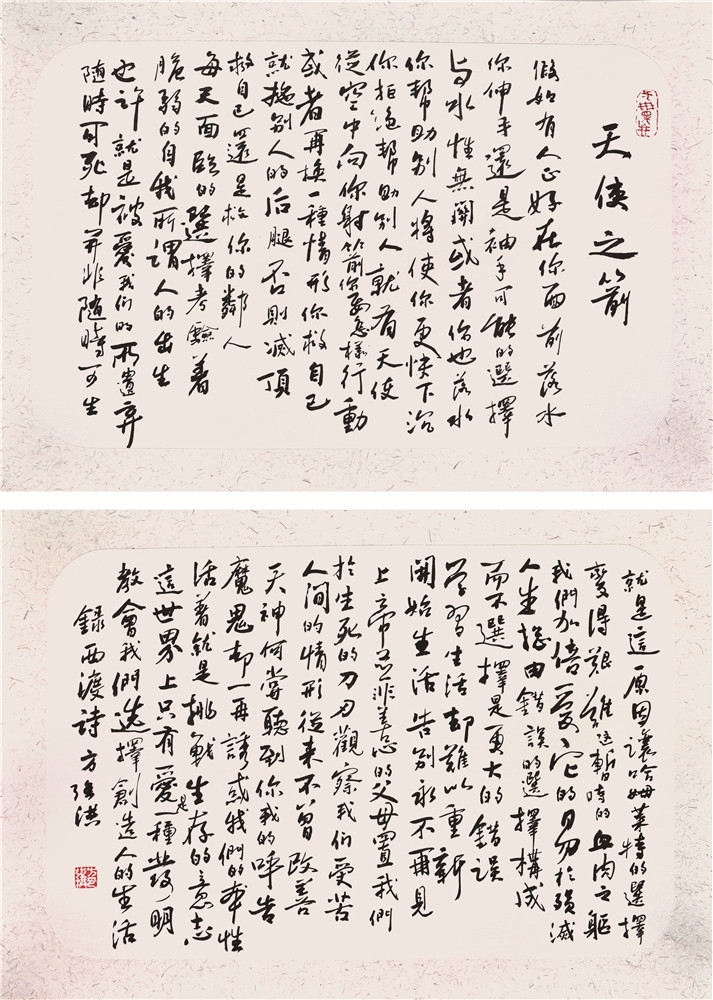 天使之箭
假如有人正好在你面前落水
你伸手還是袖手可能的選擇
與水性無關或者你也落水
你幫助別人將使你更快下沉
你拒絕幫助別人就有天使
從空中向你射箭你要怎樣行動
或者再換一種情形你救自己
就拖別人的后腿否則滅頂
救自己還是救你的鄰人
每天面臨的選擇考驗着
脆弱的自我所謂人的出生
也許就是被愛我們的所遺弃
隨時可死却并非隨時可生
就是這原因讓哈姆萊特的選擇
變得艱難這暫時的血肉之軀
我們加倍愛它的易於殞滅
人生總由錯誤的選擇構成
而不選擇是更大的錯誤
學習生活却難以重新
開始生活告别永不再見
上帝并非善意的父母置我們
於生死的刀刃觀察我們受苦
人間的情形從來不曾改善
天神何嘗聽到你我的呼告
魔鬼却一再誘惑我們的本性
活着就是挑戰生存的意志
這世界上只有愛是一種發明
教會我們選擇創造人的生活
錄西渡詩 方